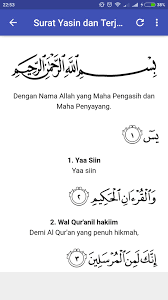 22:53
83%
Surat Yasin dan Terj...
بِسْمِ اللَّهِ الرَّحْمَٰنِ الرَّحِيمِ
Dengan Nama Allah yang Maha Pengasih dan
Maha Penyayang.
يسٓ ﴿١﴾
1. Yaa Siin
Yaa siin
وَالْقُرْءَانِ الْحَكِيمِ ﴿٢﴾
2. Wal Qur'anil hakiim
Demi Al Qur'an yang penuh hikmah,
إِنَّكَ لَمِنَ الْمُرْسَلِينَ ﴿٣﴾